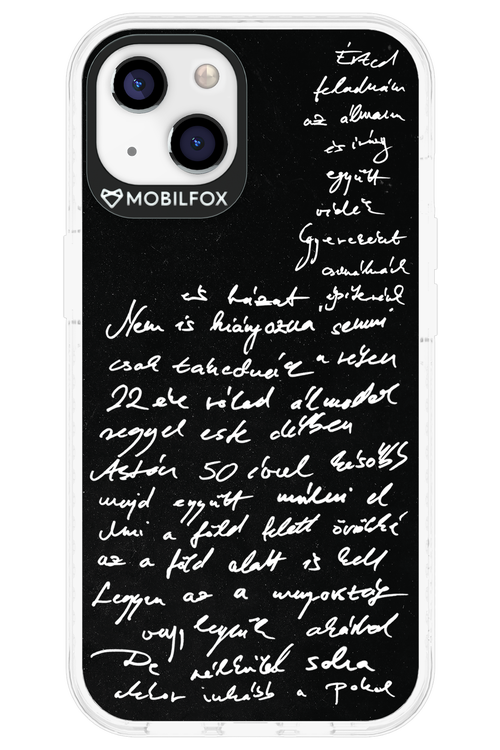 MOBILFOX
Érted
feladnám
az álmaim
és így
együtt
vidék
Gyerekeket
csinálnánk
és házat építenénk
Nem is hiányozna semmi
csak takednék a vízen
22 éve rólad álmodok
reggel este délben
Aztán 50 évvel később
majd együtt múlni el
Ami a föld felett örökké
az a föld alatt is kell
Legyen az a mennyország
vagy legyünk akárhol
De nélküled soha
akkor inkább a Pokol